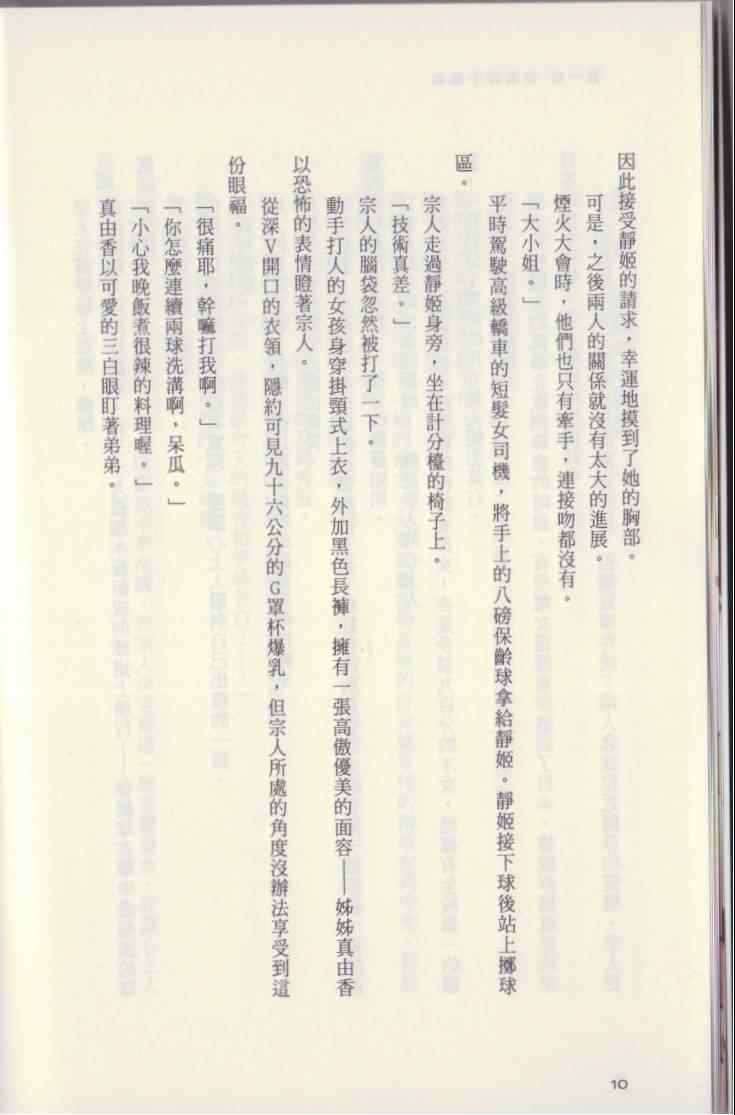 因此接受靜姬的請求，幸運地摸到了她的胸部。
可是，之後兩人的關係就沒有太大的進展。
煙火大會時，他們也只有牽手，連接吻都沒有。
「大小姐。」
平時駕駛高級轎車的短髮女司機，將手上的八磅保齡球拿給靜姬。靜姬接下球後站上擲球
區。
宗人走過靜姬身旁，坐在計分檯的椅子上。
「技術真差。」
宗人的腦袋忽然被打了一下。
動手打人的女孩身穿掛頸式上衣，外加黑色長褲，擁有一張高傲優美的面容——姊姊真由香
以恐怖的表情瞪著宗人。
從深V開口的衣領，隱約可見九十六公分的G罩杯爆乳，但宗人所處的角度沒辦法享受到這
份眼福。
「很痛耶，幹嘛打我啊。」
「你怎麼連續兩球洗溝啊，呆瓜。」
「小心我晚飯煮很辣的料理喔。」
真由香以可愛的三白眼盯著弟弟。
10